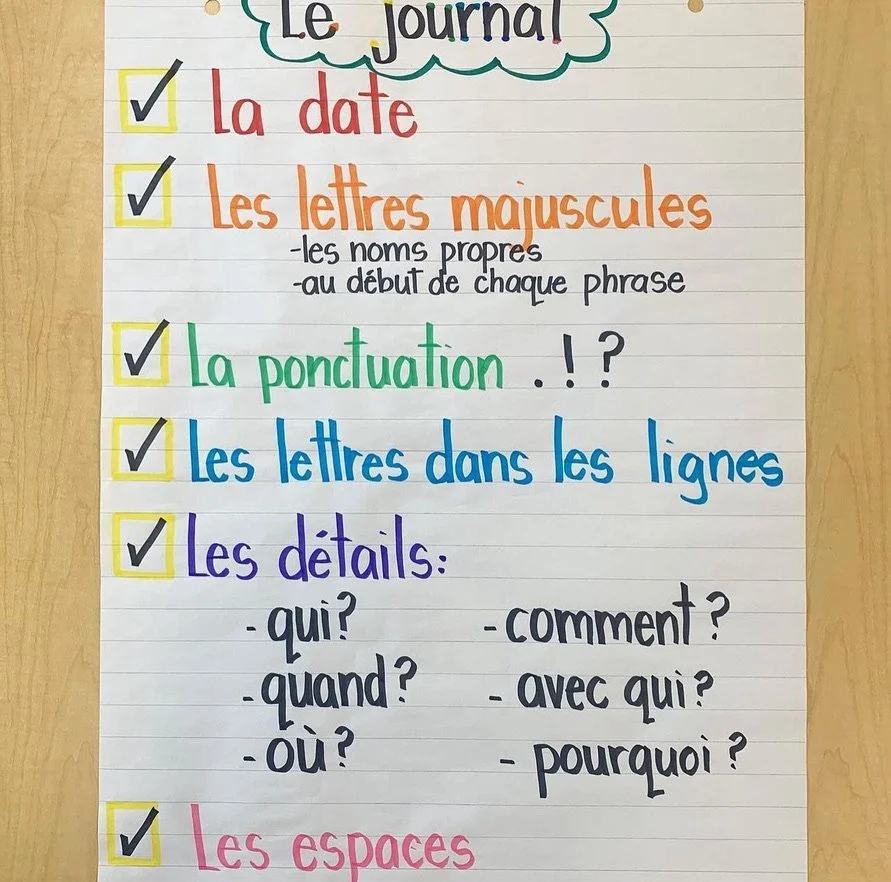 Le journal
La date
Les lettres majuscules
-les noms propres
-au début de chaque phrase
La ponctuation . ! ?
Les lettres dans les lignes
Les détails:
- qui? - comment?
- quand? - avec qui?
- où? - pourquoi?
Les espaces